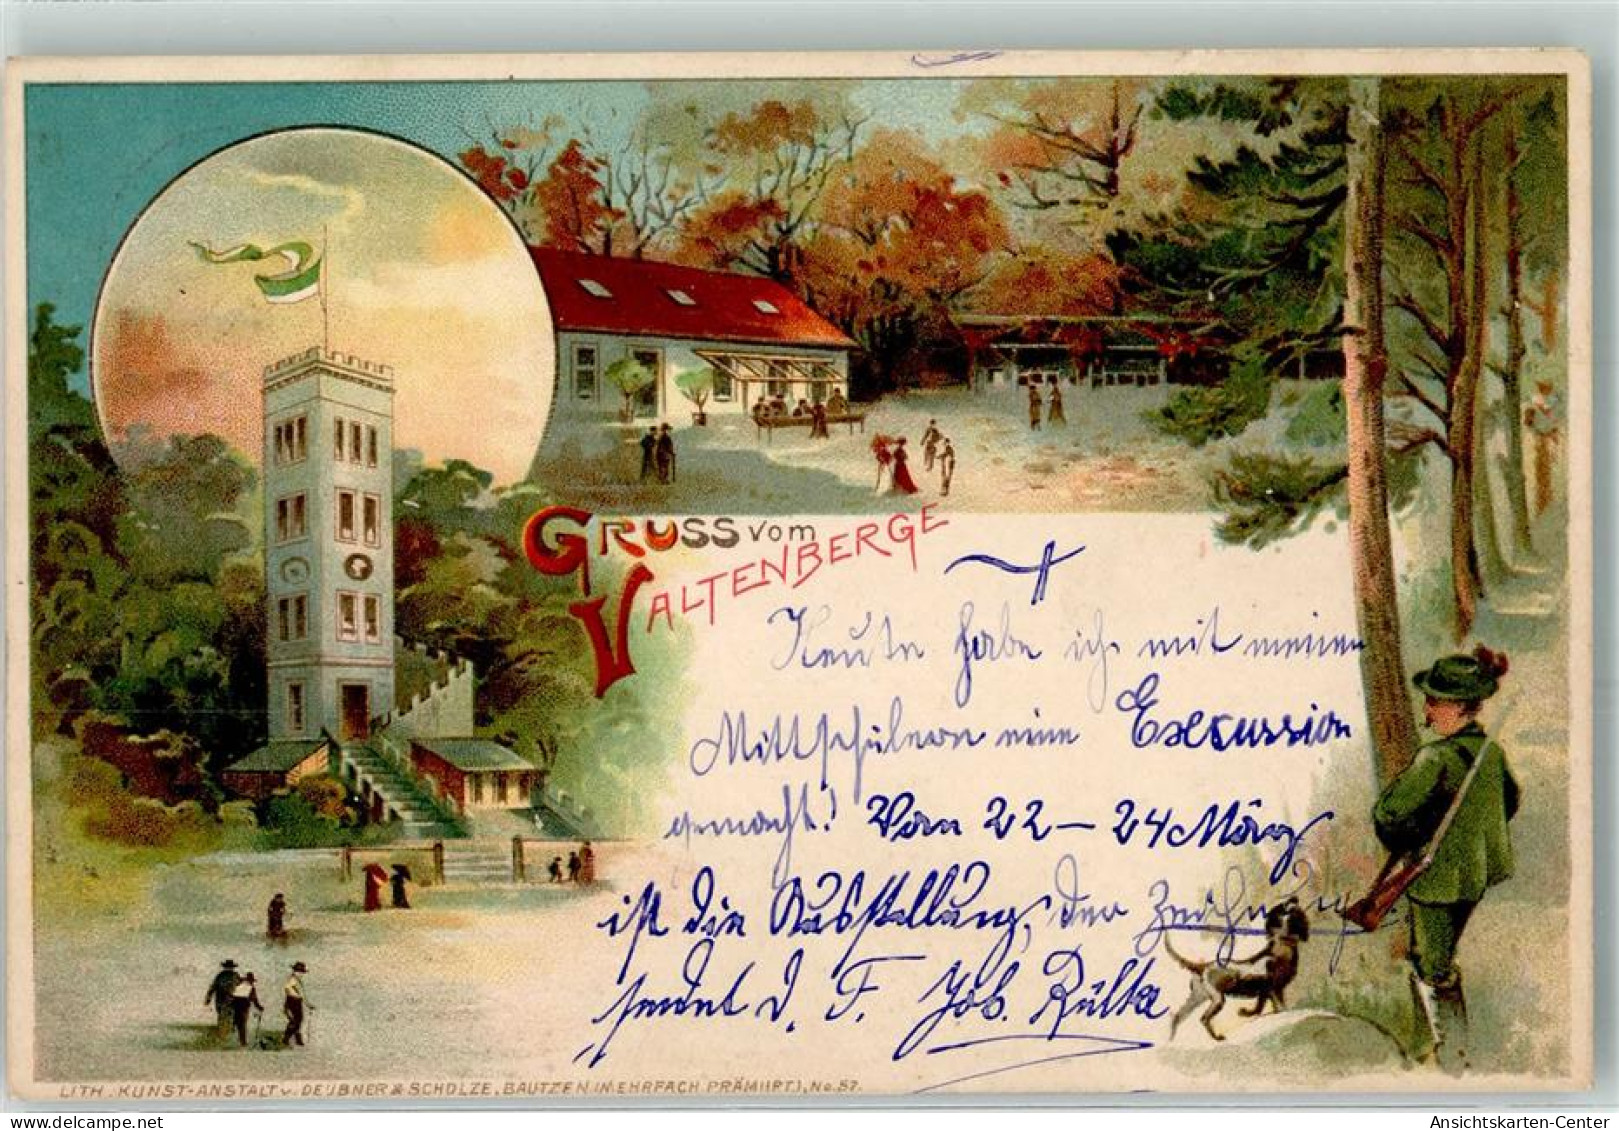 GRUSS vom
VALTENBERGE
Heute habe ich mit meinen
Mittschülern eine Excursion
gemacht! Vom 22 – 24 März
ist die Ausstellung, der Zeichnung
sendet d. F. Joh. Rülke
LITH. KUNST-ANSTALT v. DEUBNER & SCHOLZE, BAUTZEN (MEHRFACH PRÄMIIRT), No. 57.
Ansichtskarten-Center